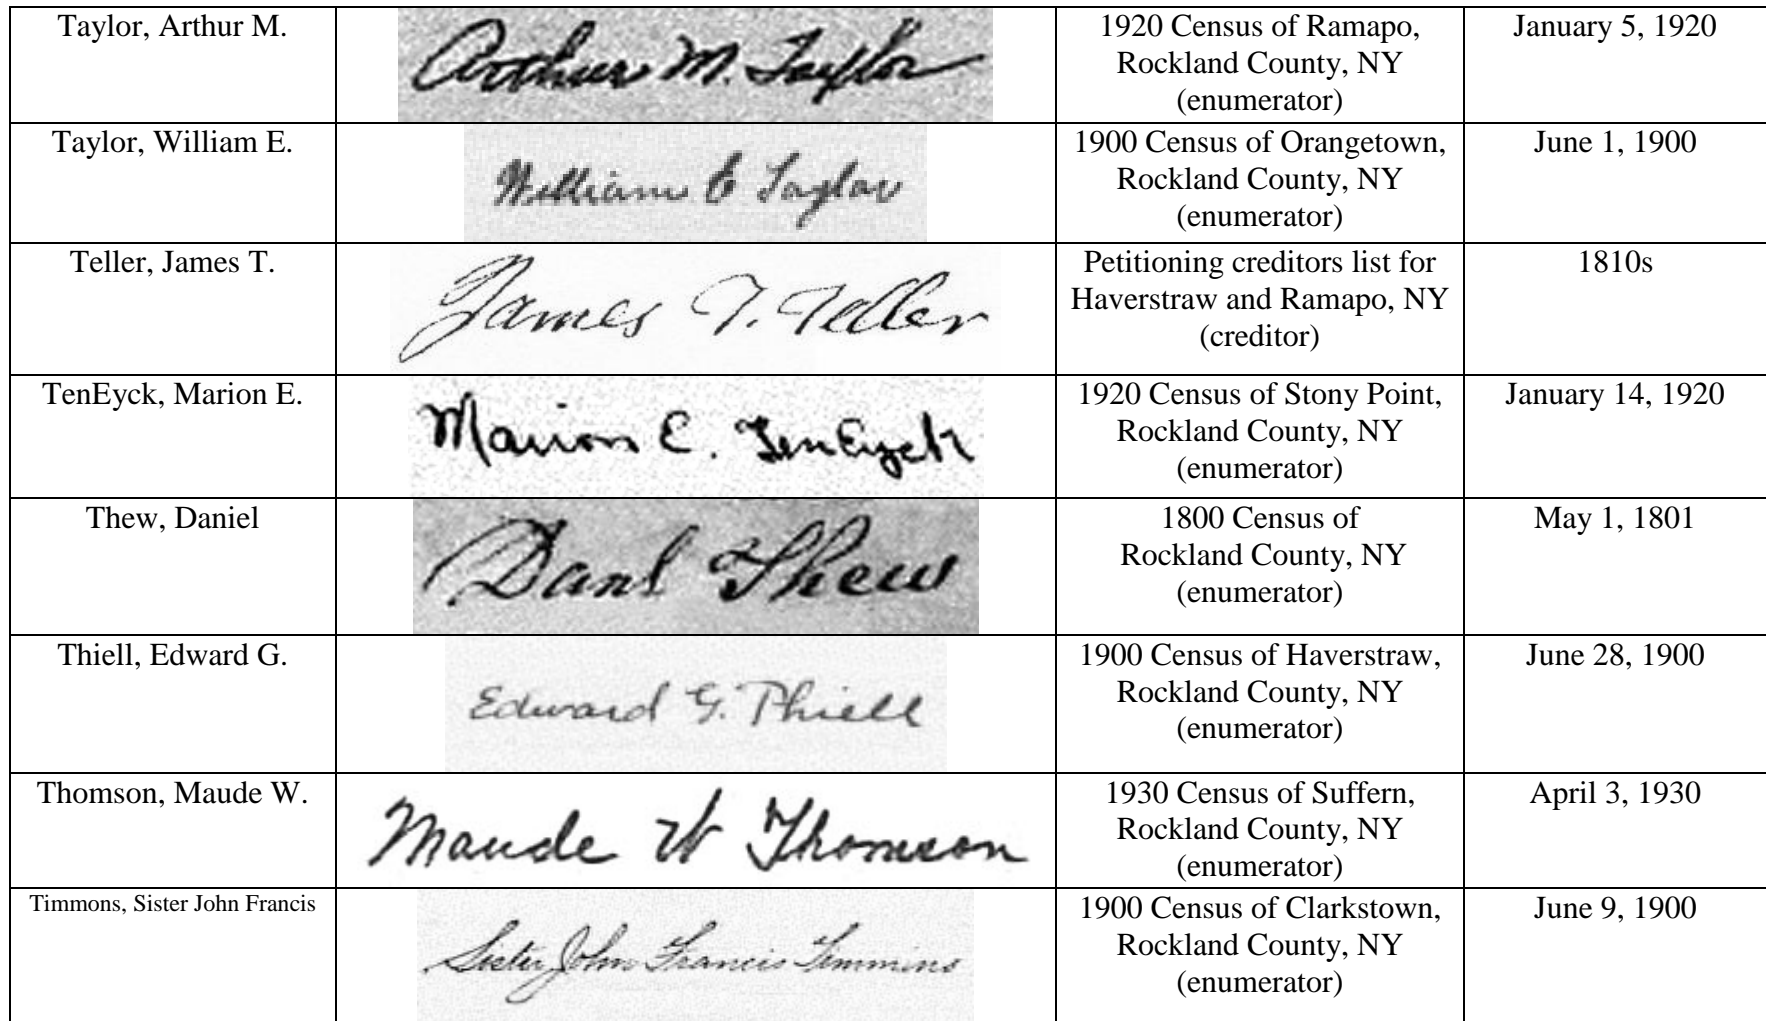 Taylor, Arthur M.
Arthur M. Taylor
1920 Census of Ramapo,
Rockland County, NY
(enumerator)
January 5, 1920
Taylor, William E.
William E Taylor
1900 Census of Orangetown,
Rockland County, NY
(enumerator)
June 1, 1900
Teller, James T.
James T. Teller
Petitioning creditors list for
Haverstraw and Ramapo, NY
(creditor)
1810s
TenEyck, Marion E.
Marion E. TenEyck
1920 Census of Stony Point,
Rockland County, NY
(enumerator)
January 14, 1920
Thew, Daniel
Danl Thew
1800 Census of
Rockland County, NY
(enumerator)
May 1, 1801
Thiell, Edward G.
Edward G. Thiell
1900 Census of Haverstraw,
Rockland County, NY
(enumerator)
June 28, 1900
Thomson, Maude W.
Maude W Thomson
1930 Census of Suffern,
Rockland County, NY
(enumerator)
April 3, 1930
Timmons, Sister John Francis
Sister John Francis Timmins
1900 Census of Clarkstown,
Rockland County, NY
(enumerator)
June 9, 1900